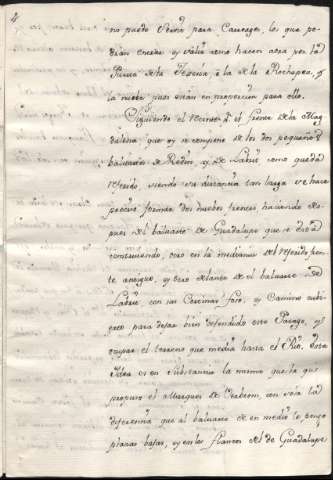 4
no puede servir para Carruages, los que po-
drian entrar y salir como hacen aora por la
Puerta de la Tegeria, ô la de la Rochapea, y
la nueba pues serian en proporcion para ello.
Siguiendo el recinto el frente de la Mag-
dalena que oy se compone de los dos pequeños
baluartes de Redin, y de Labrit como queda
referido siendo su distancia tan larga se hace
preciso formar dos nuebos frentes haciendo des-
pues del baluarte de Guadalupe que se está
construiendo, otro en la mediania del referido fren-
te antiguo, y otro delante de el baluarte de
Labrit con sus Cortinas, foso, y Camino cubi-
erto para dejar bien defendido este Parage, y
ocupar el terreno que media hasta el Rio. Esta
Idea es en substancia la misma que la que
propuso el Marques de Verboom, con sola la
diferencia que al baluarte de en medio le pongo
plazas bajas, y en los flancos del de Guadalupe